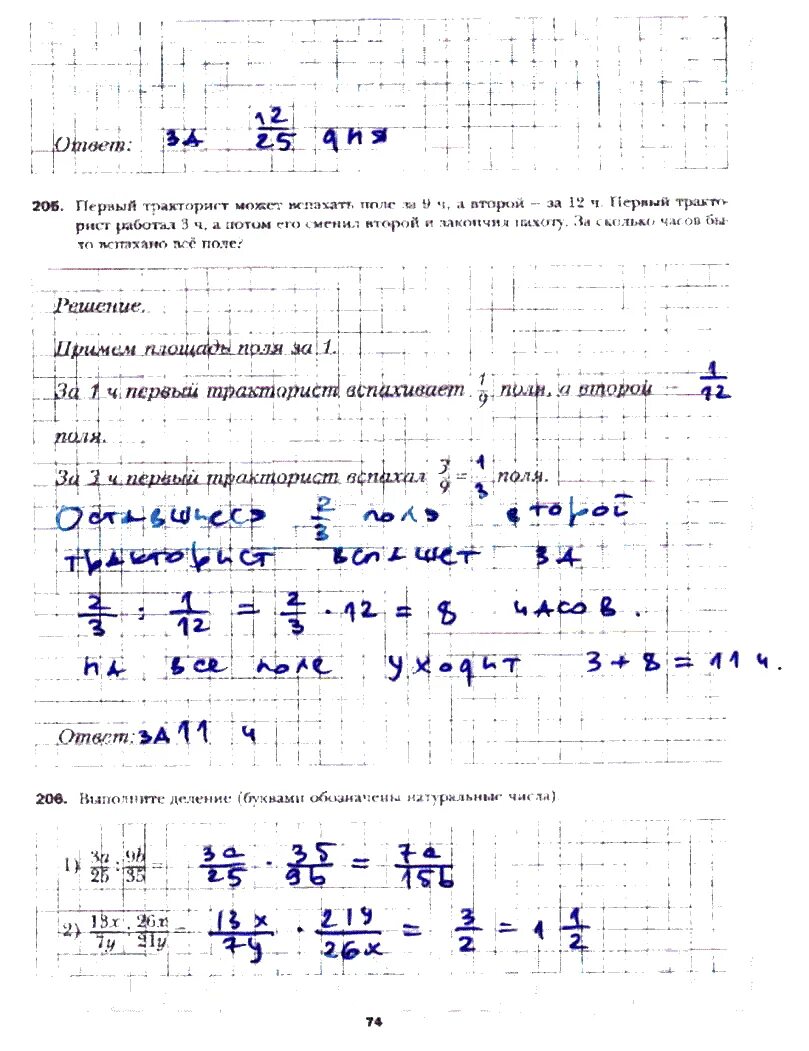 Ответ: за 12/25 дня
205. Первый тракторист может вспахать поле за 9 ч, а второй – за 12 ч. Первый тракто-
рист работал 3 ч, а потом его сменил второй и закончил пахоту. За сколько часов бы-
ло вспахано всё поле?
Решение.
Примем площадь поля за 1.
За 1 ч первый тракторист вспахивает 1/9 поля, а второй – 1/12
поля.
За 3 ч первый тракторист вспахал 3/9 = 1/3 поля.
Оставшиеся 2/3 поля второй
тракторист вспашет за
2/3 : 1/12 = 2/3 · 12 = 8 часов.
на все поле уходит 3 + 8 = 11 ч.
Ответ: за 11 ч
206. Выполните деление (буквами обозначены натуральные числа)
1) 3a/25 : 9b/35 = 3a/25 · 35/9b = 7a/15b
2) 13x/7y : 26x/21y = 13x/7y · 21y/26x = 3/2 = 1 1/2
74